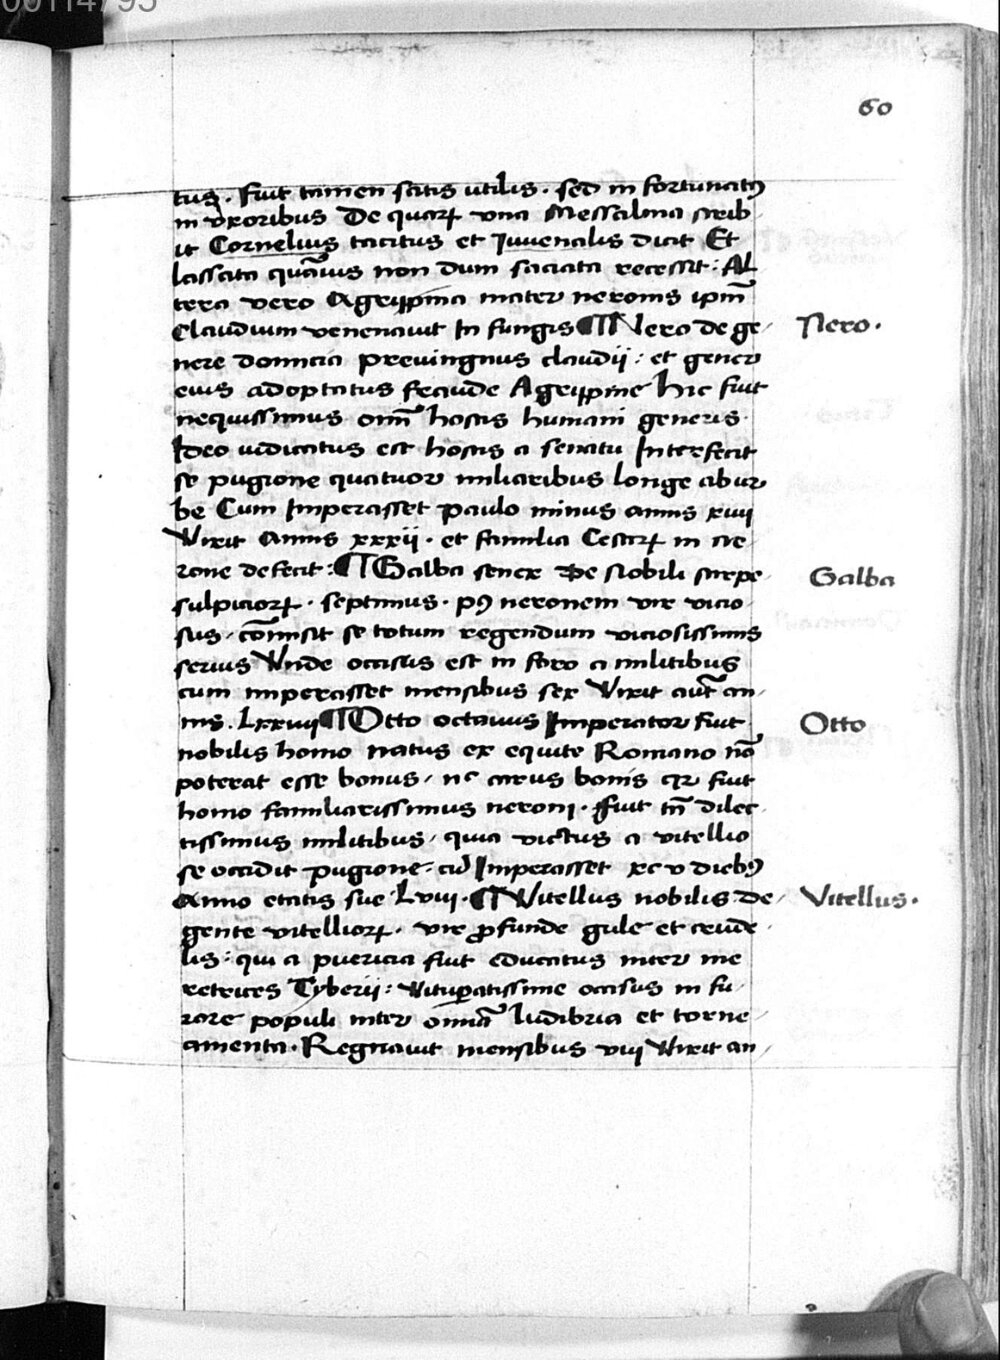 00114795
60
tus. Fuit tamen satis utilis. sed in fortunatꝰ
in vxoribus De quaꝝ una Messalina scrib
it Cornelius tacitus et Juuenalis dicit Et
lassata quãuis non dum saciata recessit: Al
tera vero Agrippina mater neronis ipm̃
Claudium venenauit In fungis ¶ Nero de ge
Nero.
nere domicia preuingnus claudii: et gener
eius adoptatus fraude Agrippine hic fuit
nequissimus om̃ hostis humani generis.
Ideo iudicatus est hostis a senatu Interfecit
se pugione quatuor miliaribus longe ab ur
be Cum Imperasset paulo minus annis xiiii
Vixit Annis xxxii. et familia Cesaꝝ in ne
rone defecit: ¶ Galba senex de Nobili stirpe
Galba
sulpicioꝝ. septimus. pꝰ neronem vir vicio
sus. com̃isit se totum regendum viciosissimis
seruis Vnde occisus est in foro a militibus
cum imperasset mensibus sex Vixit aut̃ an
nis. Lxxiiii ¶ Otto octauus Imperator fuit
Otto
nobilis homo natus ex equite Romano nõ
poterat esse bonus, nc carus bonis qꝛ fuit
homo familiarissimus neroni. Fuit tñ dilec
tissimus militibus, quia victus a vitellio
se occidit pugione. cũ Imperasset xc v diebꝰ
Anno etatis sue Lviii. ¶ Vitellus nobilis de
Vitellus.
gente vitellioꝝ. vir ꝓfunde gule et crude
lis: qui a puericia fuit educatus inter me
retrices Tyberii: Vituꝑatissime occisus in fu
rore populi inter omña ludibria et torne
amenta. Regnauit mensibus viii Vixit an